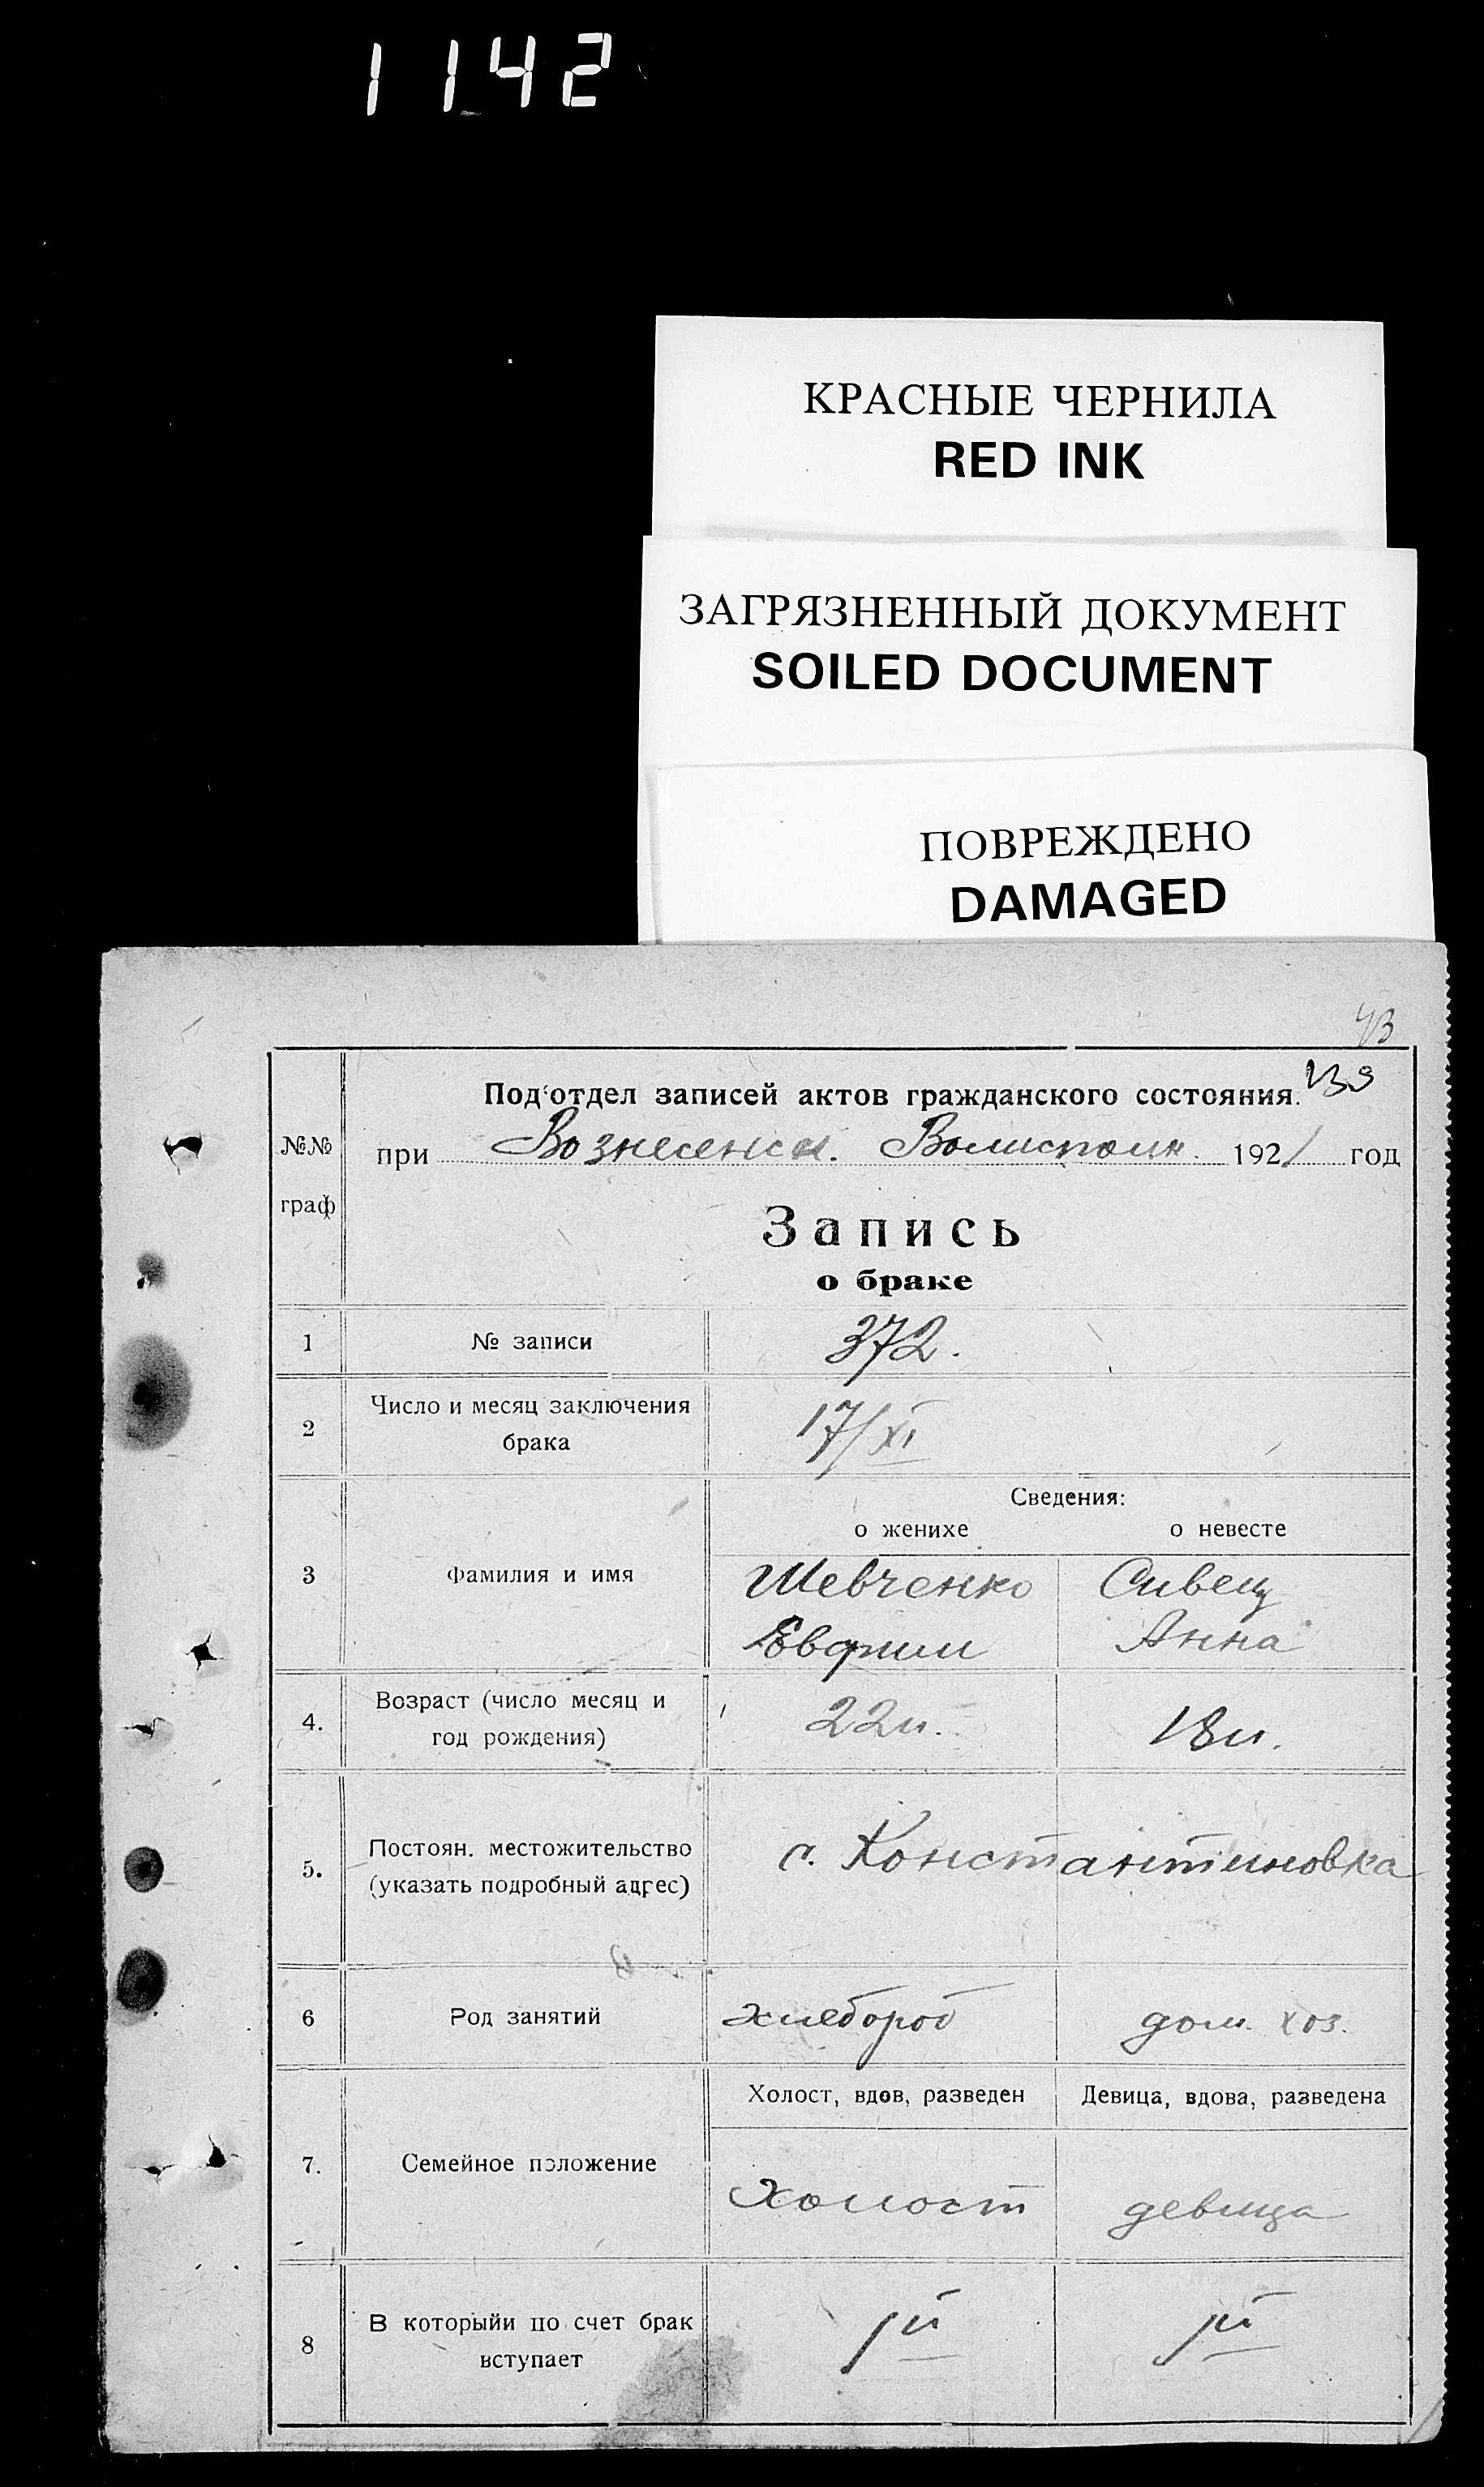 1142
КРАСНЫЕ ЧЕРНИЛА
RED INK
ЗАГРЯЗНЕННЫЙ ДОКУМЕНТ
SOILED DOCUMENT
ПОВРЕЖДЕНО
DAMAGED
43
Под'отдел записей актов гражданского состояния.
139
№№ граф
при Вознесенск. Волисполк. 1921 год
Запись
о браке
1 № записи 372.
2 Число и месяц заключения
брака
17/XI
Сведения:
о женихе о невесте
3 Фамилия и имя
Шевченко Сивец
Евфим Анна
4. Возраст (число месяц и
год рождения)
22л. 18л.
5. Постоян. местожительство
(указать подробный адрес)
с. Константиновка
6 Род занятий хлебороб дом. хоз.
Холост, вдов, разведен Девица, вдова, разведена
7. Семейное положение
Холост девица
8 В которыйи по счет брак
вступает
1й 1й